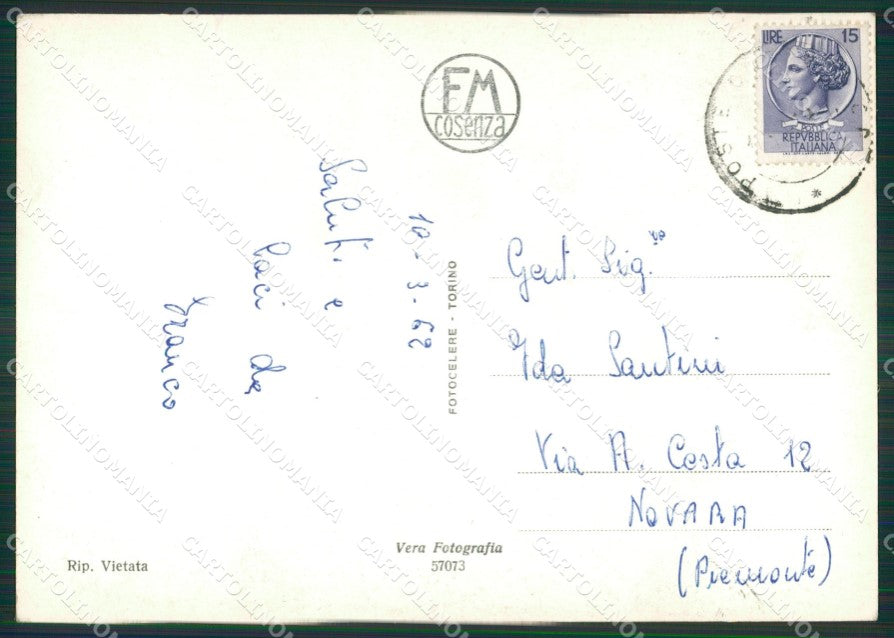 FM
cosenza
LIRE 15
POSTE
REPVBBLICA
ITALIANA
POSTE
10-3-62
Saluti e
baci da
Franco
FOTOCELERE - TORINO
Gent. Sig.na
Ida Santini
Via A. Costa 12
NOVARA
(Piemonte)
Rip. Vietata
Vera Fotografia
57073
CARTOLINOMANIA